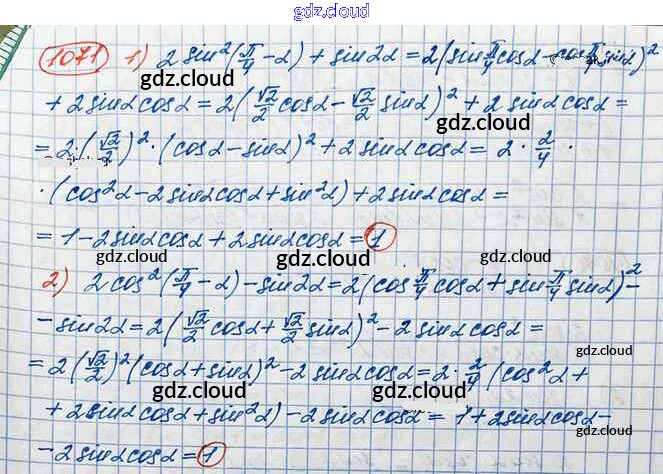 gdz.cloud
1071 1) 2 sin²(π/4 - α) + sin2α = 2(sin π/4 cosα - cos π/4 sinα)²
gdz.cloud
+ 2 sinα cosα = 2(√2/2 cosα - √2/2 sinα)² + 2 sinα cosα =
gdz.cloud
= 2·(√2/2)²·(cosα - sinα)² + 2 sinα cosα = 2 · 2/4 ·
gdz.cloud
·(cos²α - 2 sinα cosα + sin²α) + 2 sinα cosα =
gdz.cloud
= 1 - 2 sinα cosα + 2 sinα cosα = 1
gdz.cloud gdz.cloud
2) 2 cos²(π/4 - α) - sin2α = 2(cos π/4 cosα + sin π/4 sinα)² -
gdz.cloud
- sin2α = 2(√2/2 cosα + √2/2 sinα)² - 2 sinα cosα =
gdz.cloud
= 2(√2/2)²(cosα + sinα)² - 2 sinα cosα = 2 · 2/4 (cos²α +
gdz.cloud
+ 2 sinα cosα + sin²α) - 2 sinα cosα = 1 + 2 sinα cosα -
gdz.cloud
- 2 sinα cosα = 1
gdz.cloud